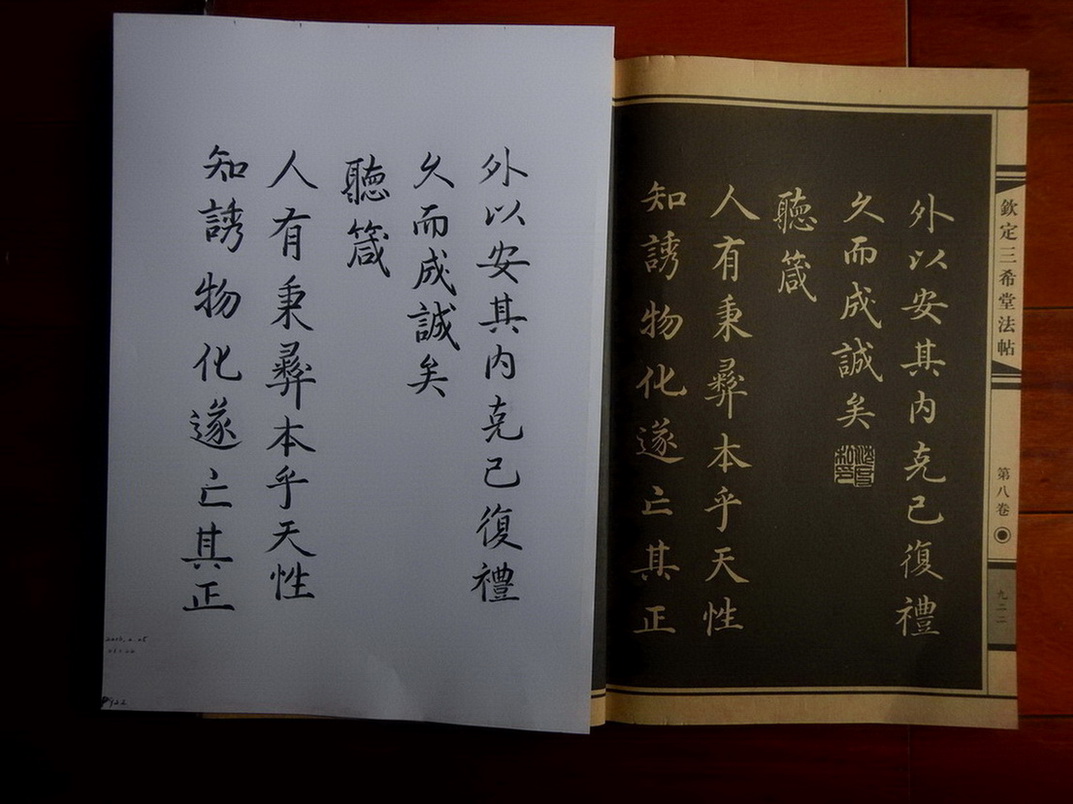 外以安其内克己復禮
久而成誠矣
聽箴
人有秉彝本乎天性
知誘物化遂亡其正
922
欽定三希堂法帖
第八卷
九二二
外以安其内克己復禮
久而成誠矣
聽箴
人有秉彝本乎天性
知誘物化遂亡其正